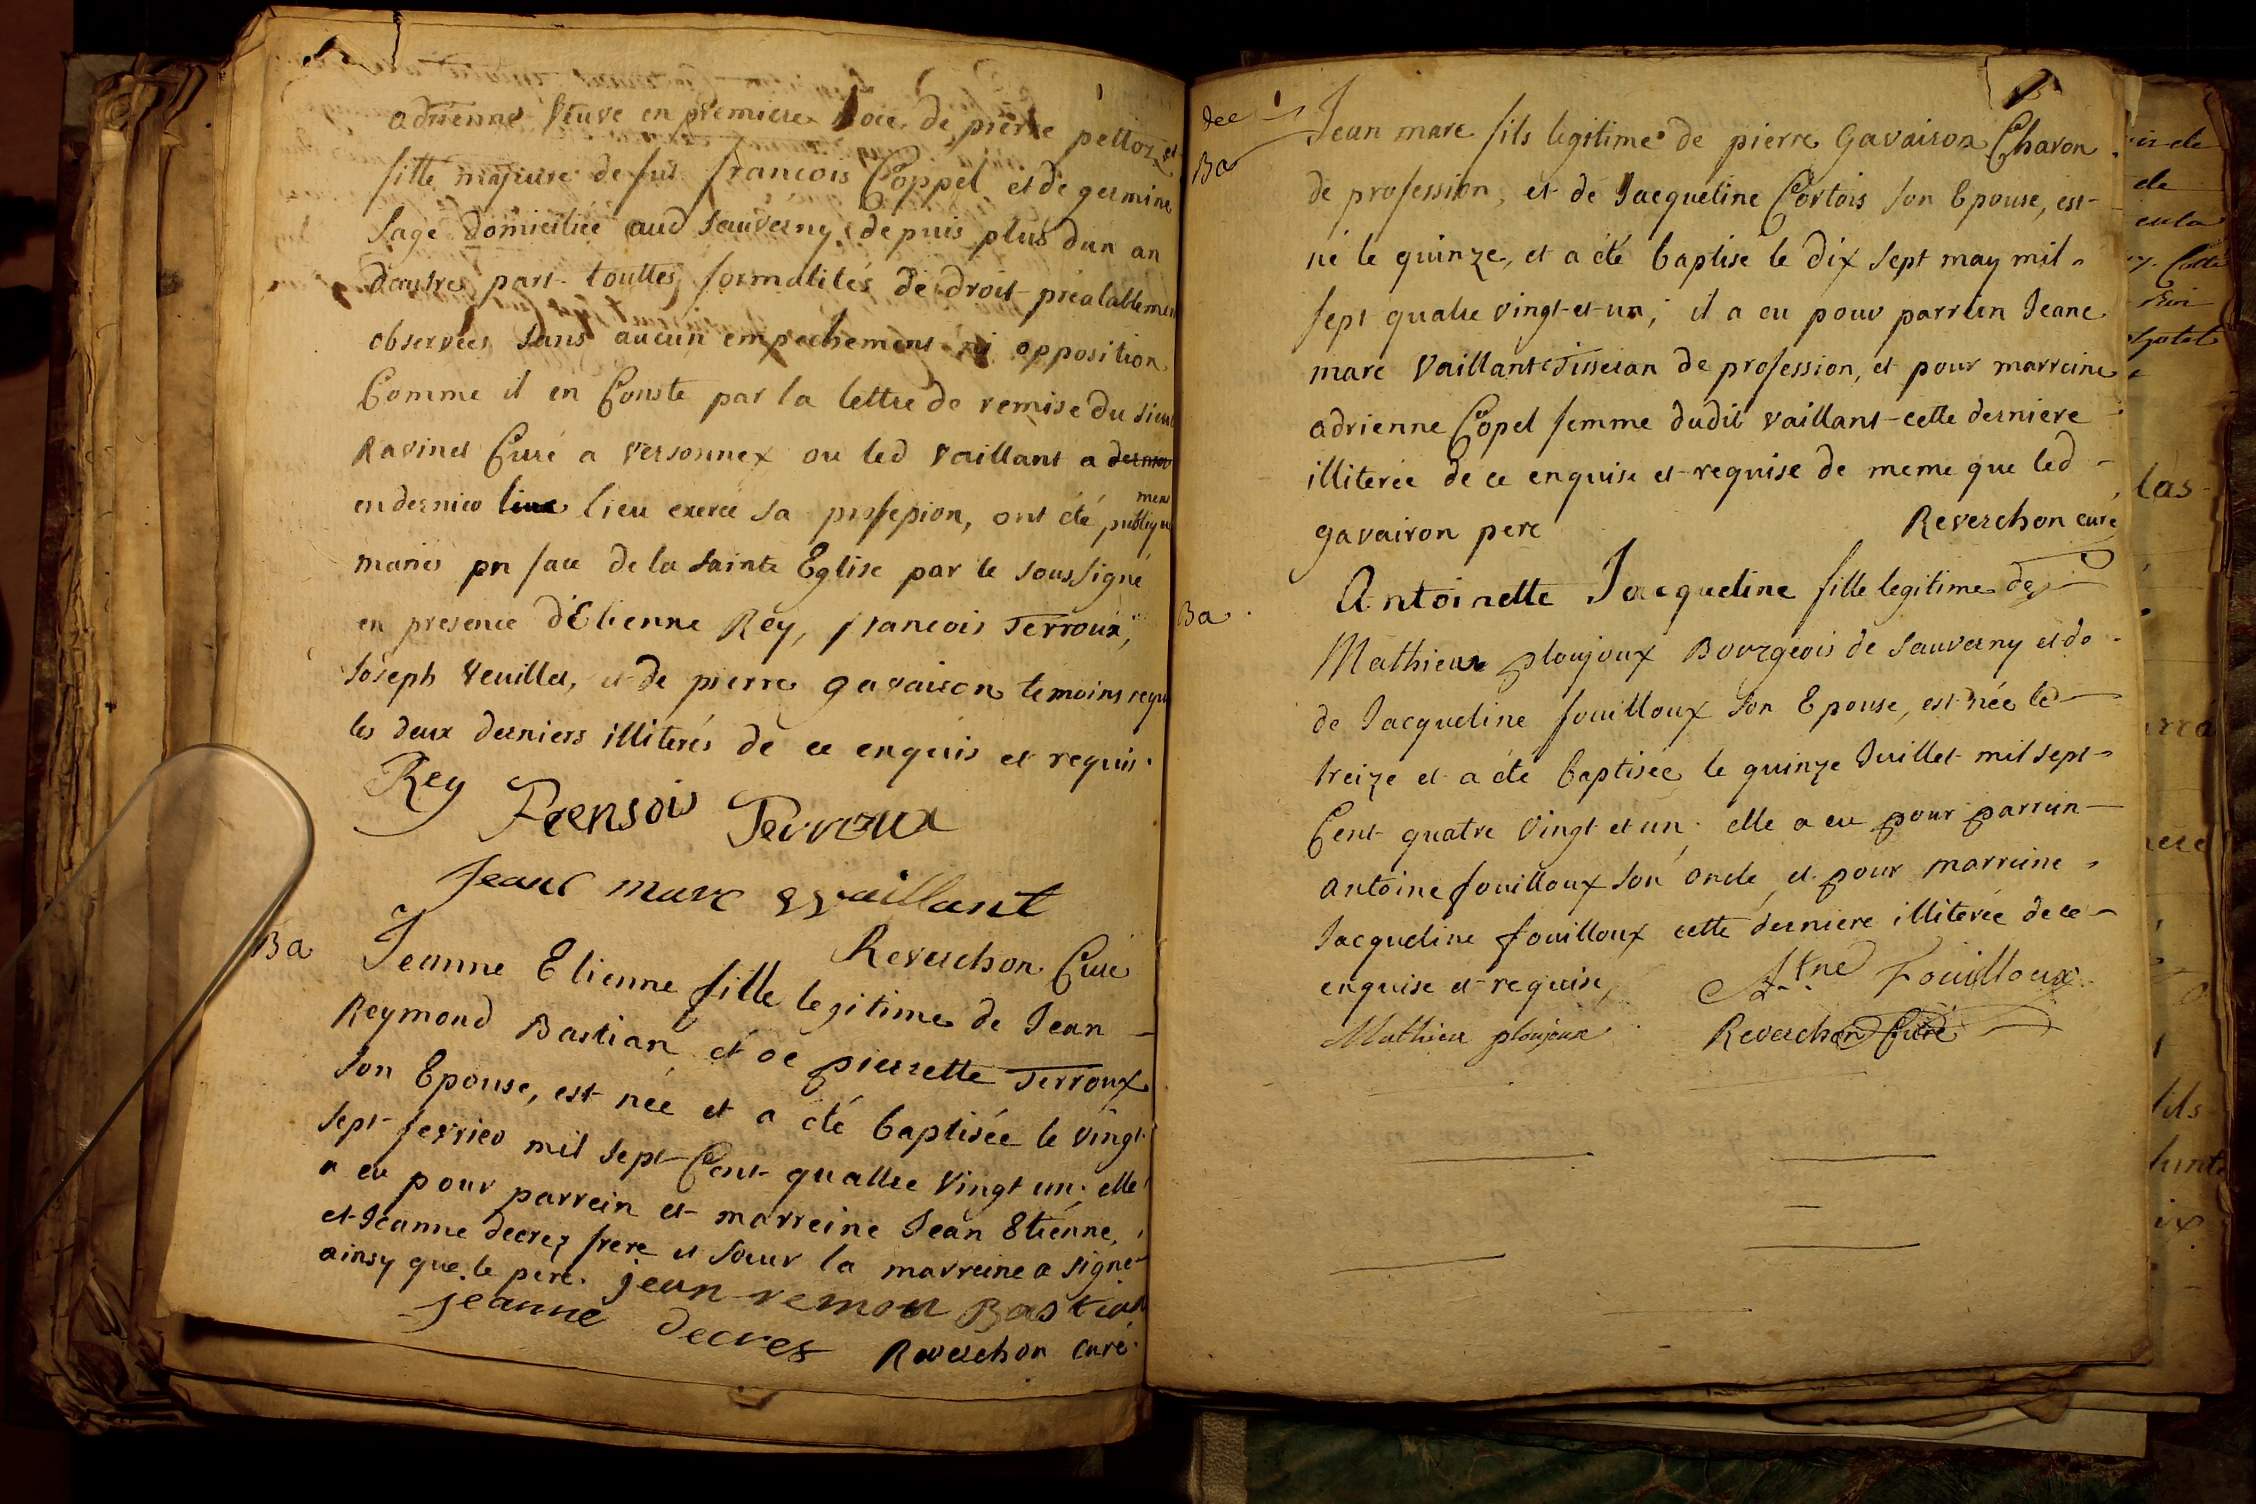 adrienne Veuve en premiere Noce de pierre pelloz et
fille majeure de fut francois Coppel et de germine
Sage domiciliée aud Sauverny depuis plus dun an
dautres part touttes formalités de droit prealablemen
observées sans aucun empechement ni opposition
Comme il en Conste par la lettre de remise du sieur
Ravinet Curé a Versonnex ou led Vaillant a
en dernier lieu exercé sa profession, ont été publique
ment
mariés en face de la Sainte Eglise par le soussigné
en presence d'Etienne Rey, francois Terroux,
Joseph Veuillet, et de pierre gavairon temoins requi
les deux derniers illiterés de ce enquis et requis.
Rey
Frensois Terroux
Jean marc Vaillant
Reverchon Curé
Ba
Jeanne Etienne fille legitime de Jean
Reymond Bastian et de pierrette Terroux
son Epouse, est née et a été baptisée le vingt
sept fevrier mil sept Cent quattre Vingt un; elle
a eu pour parrein et marreine Jean Etiénne
et Jeanne decrez frere et soeur la marreine a signé
ainsy que le pere. jean remon Bastian
jeanne decres
Reverchon curé.
dec
Ba
Jean marc fils legitime de pierre Gavairon Charon
de profession, et de Jacqueline Cortois son Epouse, est
né le quinze, et a été baptisé le dix sept may mil
sept quatre vingt et un; il a eu pour parrein Jean
marc Vaillant Tisseran de profession, et pour marreine
adrienne Copel femme dudit vaillant cette derniere
illiterée de ce enquise et requise de meme que led
gavairon pere
Reverchon curé
Ba
Antoinette Jacqueline fille legitime de
Mathieu ploujoux Bourgeois de Sauverny et de
de Jacqueline fouilloux son Epouse, est née le
treize et a été baptisée le quinze Juillet mil sept
Cent quatre Vingt et un; elle a eu pour parrein
antoine fouilloux son oncle, et pour marreine
Jacqueline fouilloux cette derniere illiterée de ce
enquise et requise,
At.ne Fouilloux
Mathieu ploujoux
Reverchon Curé